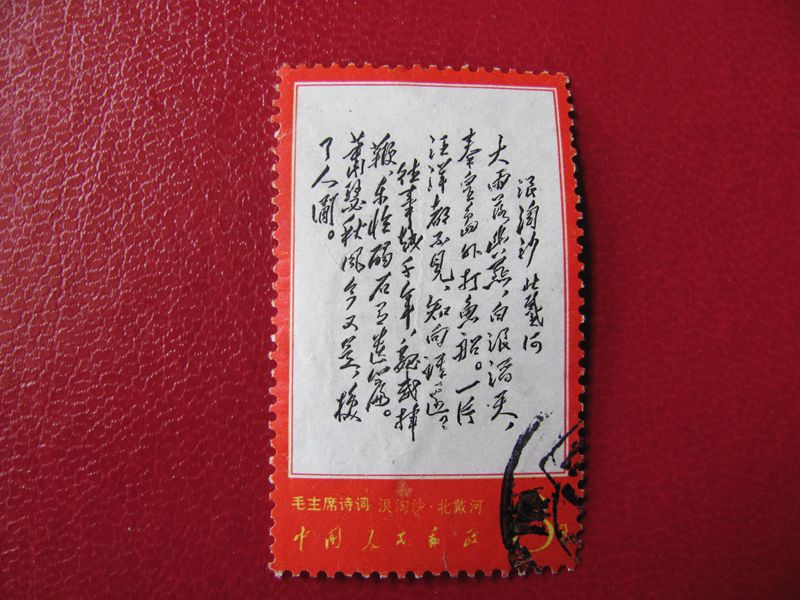 浪淘沙 北戴河
大雨落幽燕,白浪滔天,
秦皇島外打魚船。一片
汪洋都不見,知向誰邊?
往事越千年,魏武揮
鞭,東臨碣石有遺篇。
蕭瑟秋風今又是,換
了人間。
毛主席诗词 浪淘沙·北戴河
中国人民邮政